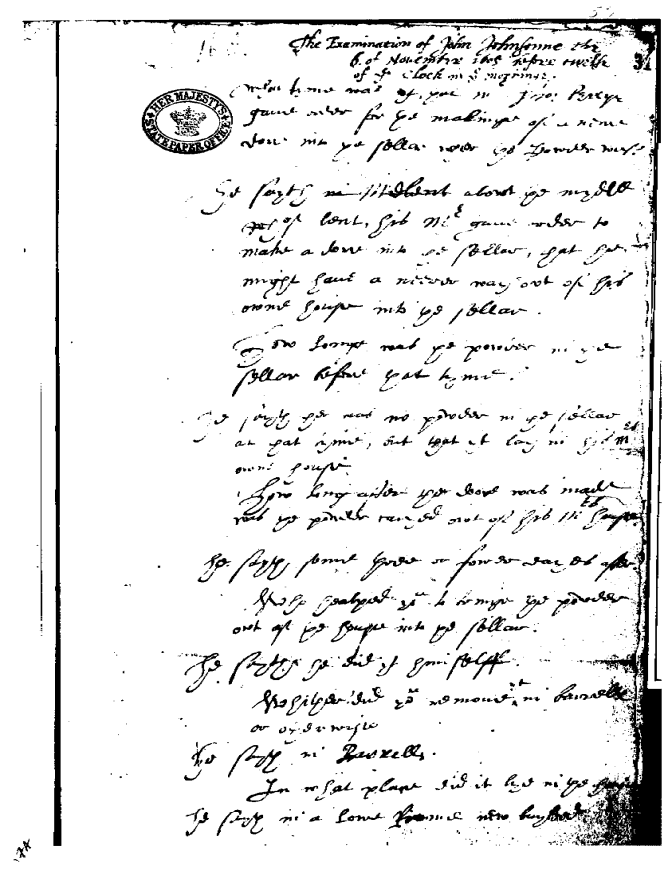 The Examination of John Johnsonne the
6. of November 1605 before twelfe
of ye clock in ye morninge.
31
HER MAJESTY'S
STATE PAPER OFFICE
What tyme was yt, yat in
gaue order for ye makinge of a newe
dore into ye sellar wer ye powder was.
He sayth in lent about ye myddle
of lent, his Mr gaue order to
make a dore into ye sellar, that he
might haue a neerer way out of his
owne house into ye sellar.
How longe was ye powder in ye
sellar before yat tyme.
He sayth yer was no powder in ye sellar
at yat tyme, but that it lay in his Mrs
owne house.
How long after yer dore was made
was ye powder caryed out of his Mrs house
he sayth some three or fower dayes after
Who healped yu to bringe ye powder
out of ye house into ye sellar.
He sayth he did yt himselff.
Whither did yu remoue it in barrells
or oyerwise
He sayth in Barrells.
In what place did it lye in ye house
he sayth in a lowe Roome new buylded